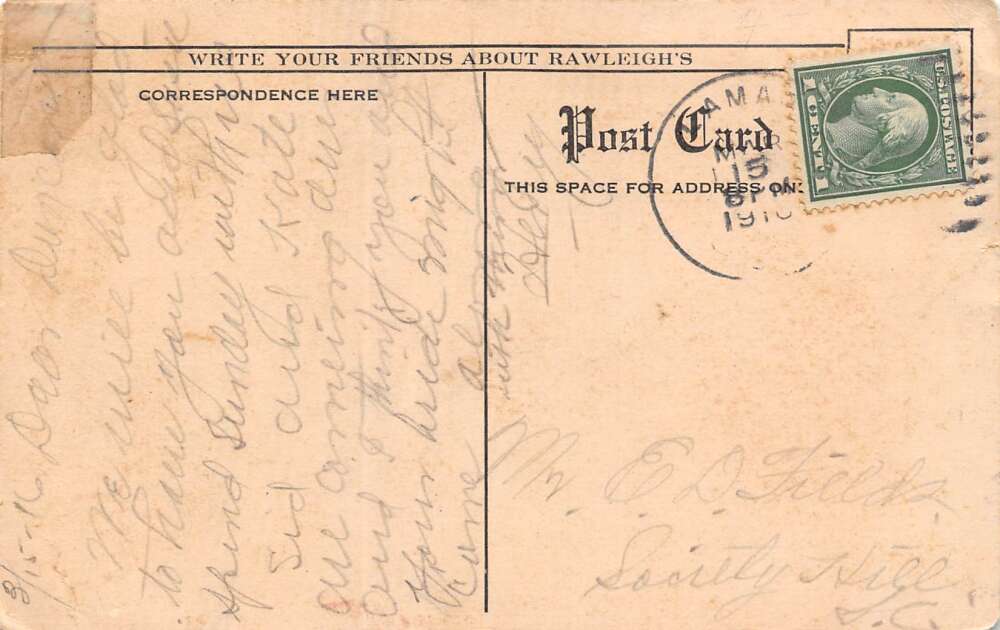 WRITE YOUR FRIENDS ABOUT RAWLEIGH'S
CORRESPONDENCE HERE
Post Card
THIS SPACE FOR ADDRESS ON
MAR
15
6 PM
191
U.S. POSTAGE
3/15-16. Dear
We will be glad
to have you
spend Sunday with us
Sid and Kate
are comeing down
and I think you and
your bride might
come along
with
Mr E D Fields
Society Hill
S.C.